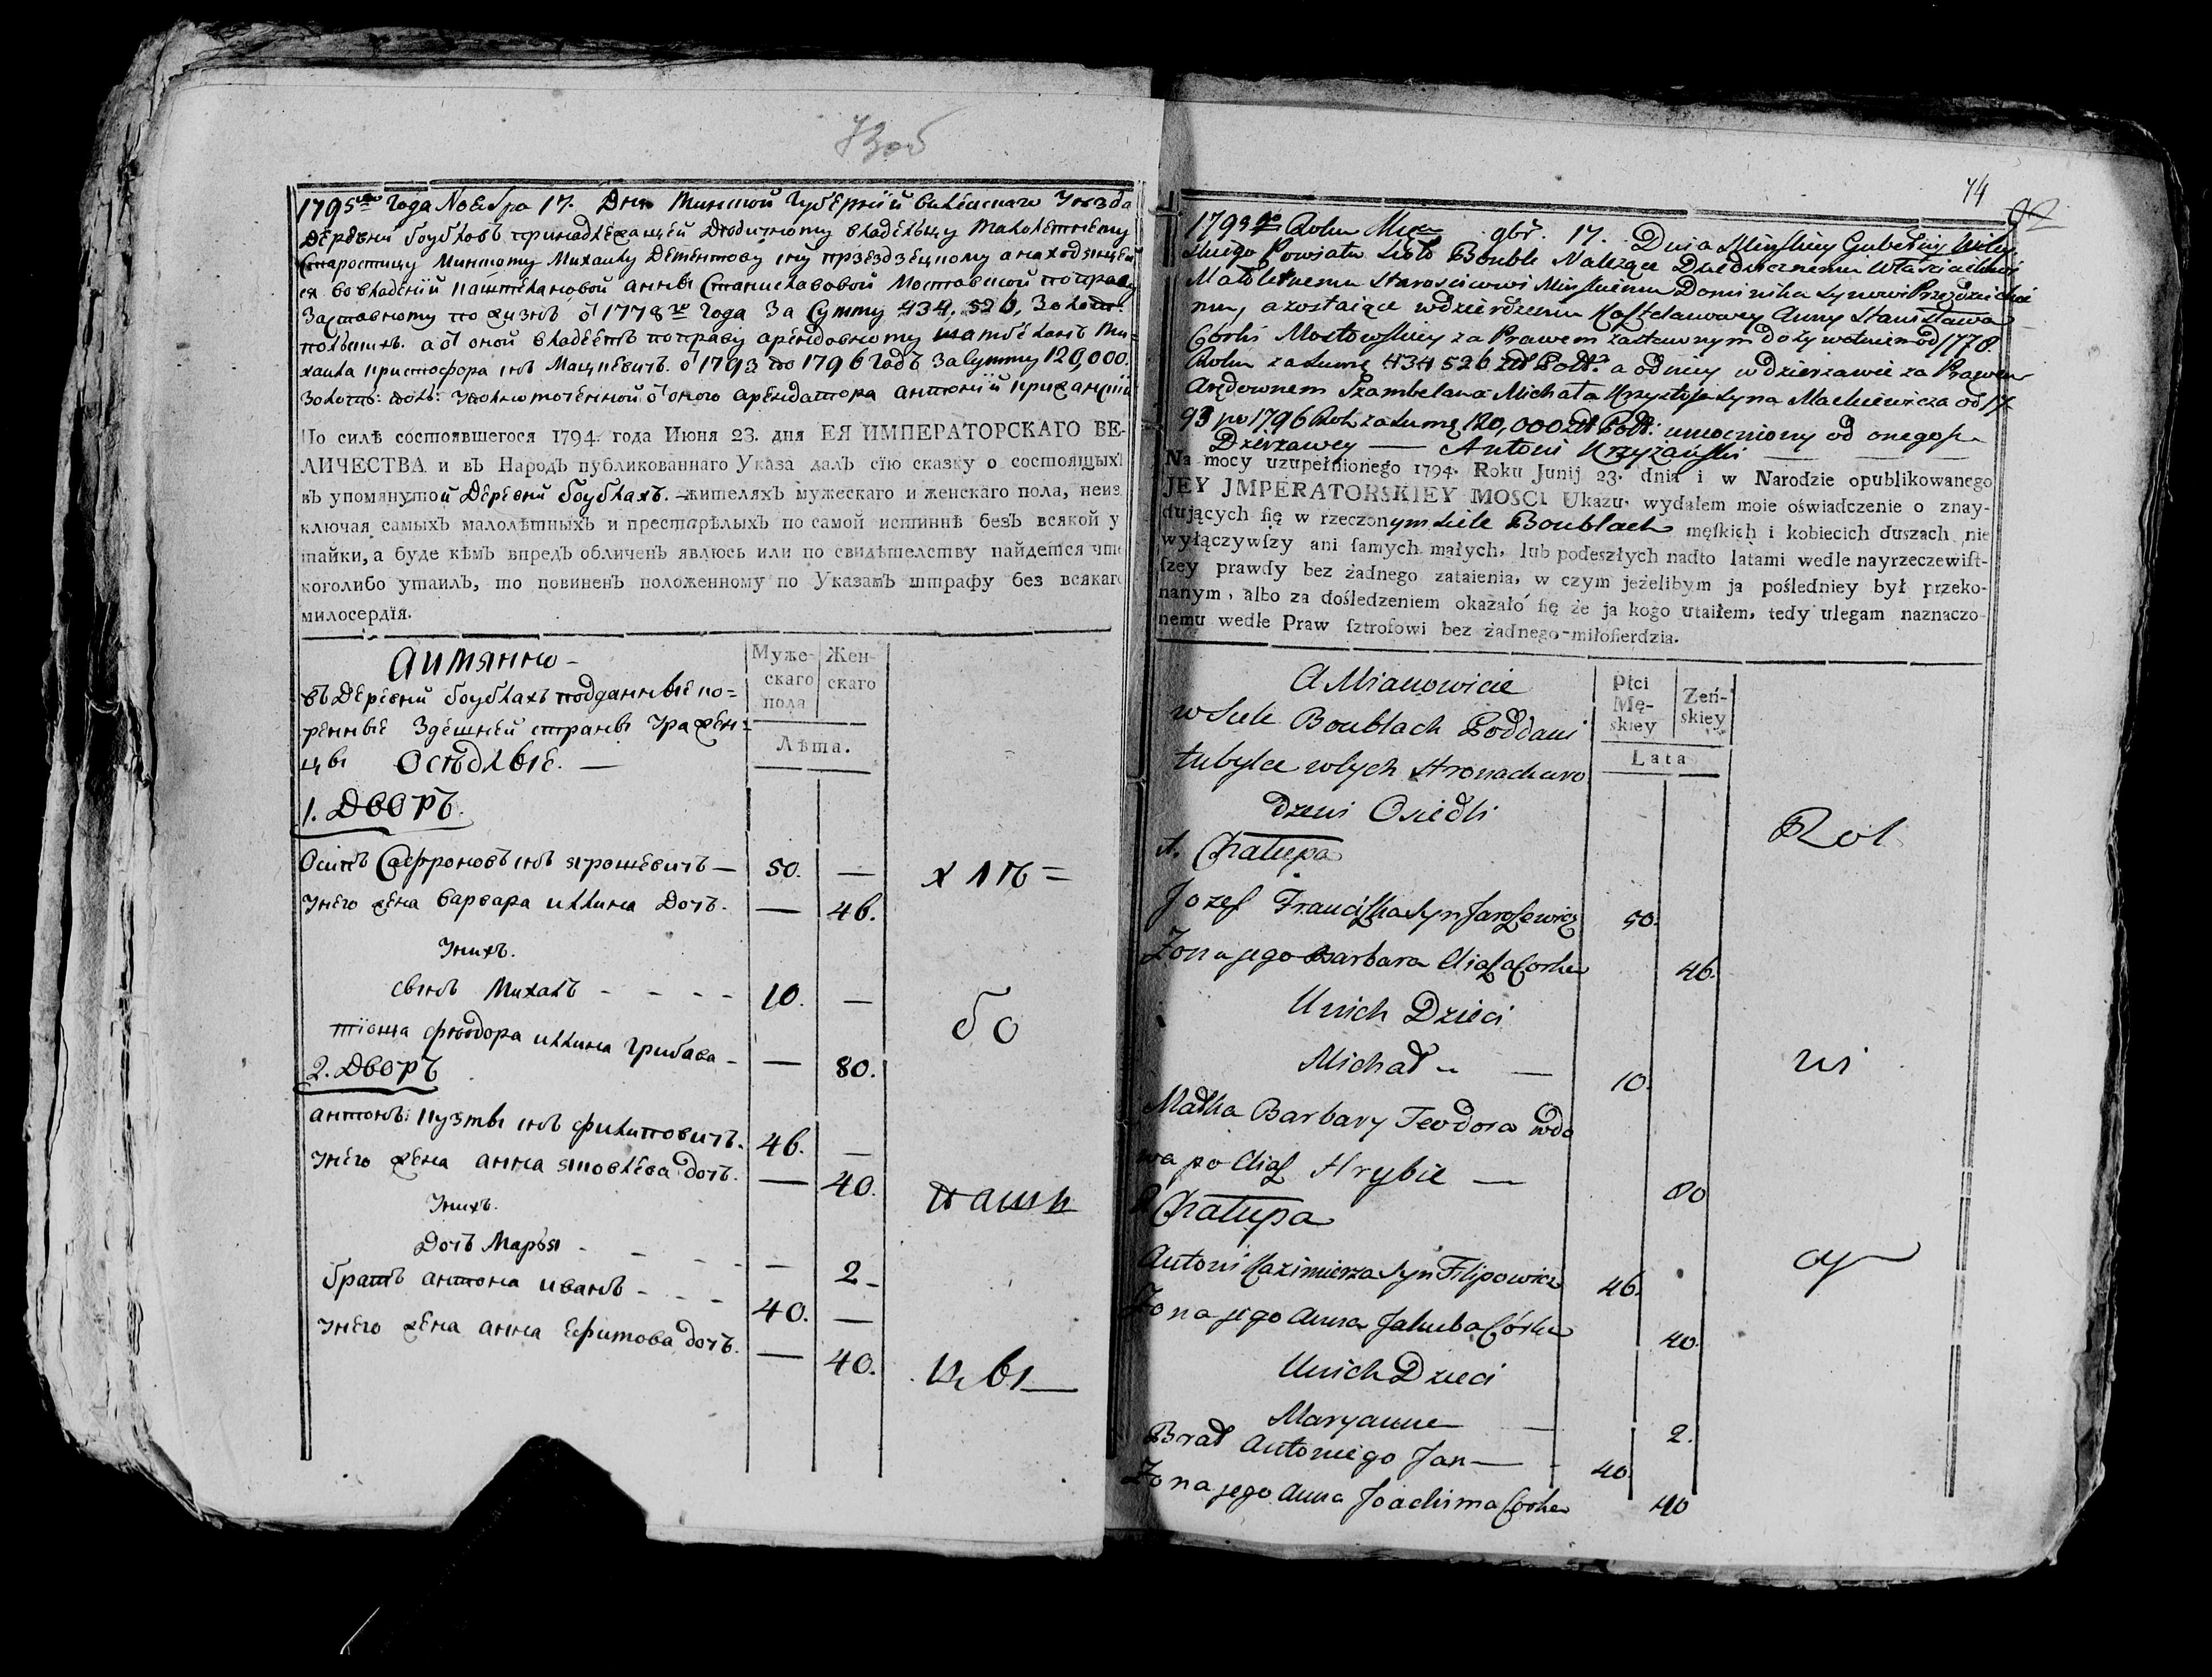 1795го года Ноебра 17. Дня Минской Губернїи Вилейскаго Уѣзда
Деревни Боубловъ принадлежащей Дѣдичному владельцу Малолетнему
Старостицу Минскому Михаилу Дементову сну Прзездзецкому а находящей
ся во владенїи каштеляновой Анны Станиславовой Мостовской по праву
Заставному по жизнь о 1778го года За Сумму 434,526, Золот:
польскихъ. а о оной владеетъ по праву арендовному Шамбелянъ Ми=
хаила Кристофора снъ Мацкевичъ. о 1793 до 1796 Годъ За Сумму 120,000
Золоты: поль: Уполномоченной о оного арендатора Антонїй Крижанскїй
По силѣ состоявшегося 1794. года Июня 23. дня ЕЯ ИМПЕРАТОРСКАГО ВЕ-
ЛИЧЕСТВА и въ Народъ публикованнаго Указа далъ сїю сказку о состоящыхъ
въ упомянутой Деревни Боублахъ. жителяхъ мужескаго и женскаго пола, неиз
ключая самыхъ малолѣтныхъ и престарѣлыхъ по самой истиннѣ безъ всякой у
тайки, а буде кѣмъ впредъ обличенъ явлюсь или по свидѣтелству найдется что
коголибо утаилъ, то повиненъ положенному по Указамъ штрафу без всякаго
милосердїя.
Аимянно
Муже-
скаго
пола
Жен-
скаго
Лѣта.
въ Деревни Боублахъ подданные ко=
ренные Здешней страны Урожен=
цы Оседлые.
1. Дворъ.
Осипъ Сафроновъ снъ Ярошевичъ — 50. —
Унего жена Варвара Иллина Дочь. — 46.
Унихъ.
сынъ Михалъ - - - - 10. —
тїоща Фіодора Иллина Грибава - — 80.
2. Дворъ
Антонъ: Кузмы снъ Филиповичъ. 46. —
Унего жена Анна Яковлева дочь. — 40.
Унихъ.
Дочь Марья - - - - — 2
братъ Антона Иванъ - - - 40. —
Унего жена Анна Ефимова дочь. — 40.
хлѣ=
бо
паш
цы
74
1795go Roku Msca 9br. 17. Dnia Minskiey Gubernij Wiley
skiego Powiatu Sioło Bouble Należące Dziedzicznemu Właścicielowi
Małoletnemu Starościcowi Minskiemu Dominika Synowi Przezdzieckie
mu, a zostaiące w dzierżeniu Kasztelanowey Anny Stanisława
Córki Mostowskiey za Prawem zastawnym dożywotniem od 1778.
Roku za sumę 434526 Zł Pols. a od niey w dzierżawie za Prawem
Arędownem Szambelana Michała Krzysztofa Syna Mackiewicza od 17
93 po 1796 Rok za sumę 120,000 zł Pols: umocniony od onego
Dzierżawcy — Antoni Krzyżański
Na mocy uzupełnionego 1794. Roku Junij 23. dnia i w Narodzie opublikowanego
JEY JMPERATORSKIEY MOSCI Ukazu, wydałem moie oświadczenie o znay-
duiących się w rzeczonym siele Boublach męskich i kobiecich duszach nie
wyłączywſzy ani ſamych małych, lub podeszłych nadto latami wedle nayrzeczewiſt-
ſzey prawdy bez żadnego zataienia, w czym jeżelibym ja poślednieу był przeko-
nanym, albo za dośledzeniem okazało się że ja kogo utaiłem, tedy ulegam naznaczo-
nemu wedle Praw ſztrofowi bez żadnego miłoſierdzia.
A Mianowicie
Płci
Mę-
skiey
Zeń-
skiey
Lata
w Siele Boublach Poddani
tubylce w tych stronach uro
dzeni Osiedli
1. Chałupa
Jozef Franciszka Syn Jaroszewicz 50.
Zona jego Barbara Eliasza Corka 46.
Unich Dzieci
Michał — 10.
Matka Barbary Teodora wdo
wa po Eliasz Hrybie — 80
2 Chałupa
Antoni Kazimierza Syn Filipowicz 46.
Zona jego Anna Jakuba Córka 40.
Unich Dzieci
Maryanna — 2.
Brat Antoniego Jan — 40.
Zona jego Anna Joachima Corka 40
Rol
ni
cy